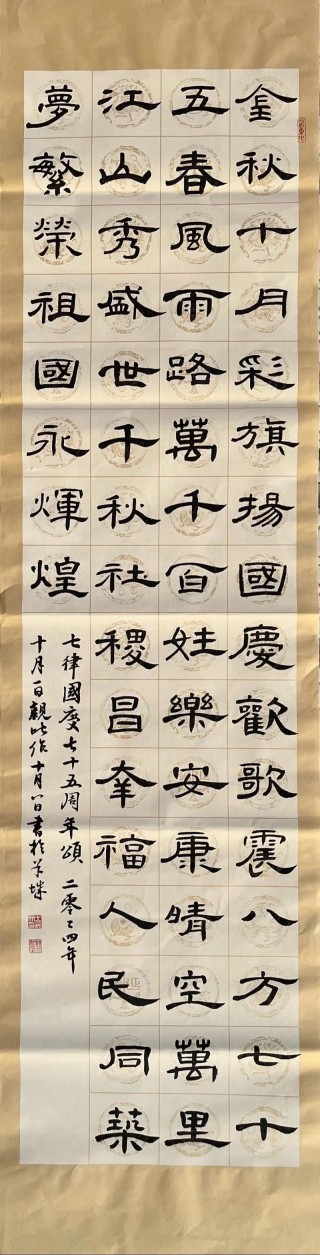 金秋十月彩旗揚國慶歡歌震八方七十
五春風雨路萬千百姓樂安康晴空萬里
江山秀盛世千秋社稷昌幸福人民同築
夢繁榮祖國永煇煌
七律國慶七十五周年頌 二零二四年
十月一日觀此作十月八日書於羊城